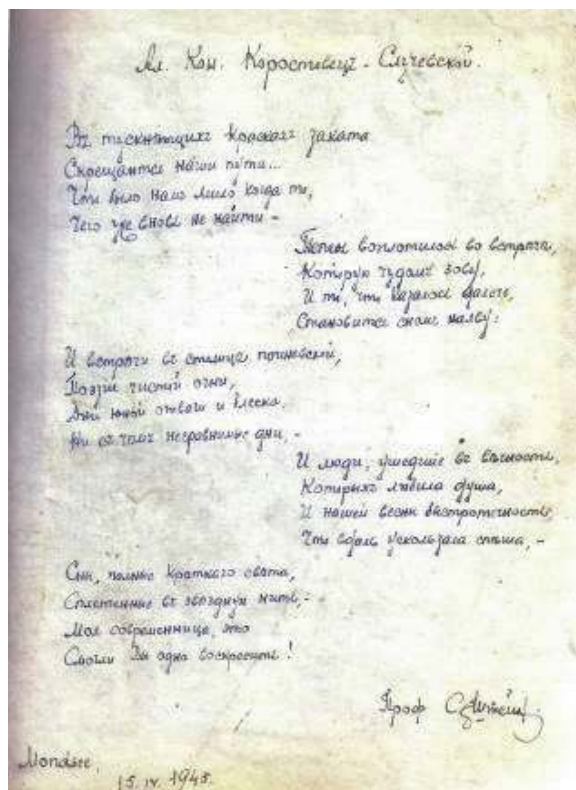 Ал. Кон. Коростовецъ-Случевской.
Въ тускнѣющихъ краскахъ заката
Скрещаются наши пути...
Что было намъ мило когда то,
Чего уже вновь не найти –
Теперь воплотилось во встрѣчѣ,
Которую чудомъ зову,
И то, что казалось далече,
Становится сномъ наяву:
И встрѣчи въ столицѣ
Поэзіи чистой огни,
Дни юной отваги и блеска.
Ни съ чѣмъ несравнимые дни, –
И люди, ушедшіе въ вѣчность,
Которыхъ любила душа,
И нашей весны быстротечность,
Что вдаль ускользала спѣша, –
Сны, полные краткаго свѣта,
Сплетенные въ звѣздную нить, –
Моя современница, это
Смогли Вы одна воскресить!
Проф С. Штейнъ
Mondsee,
15.IV.1945.